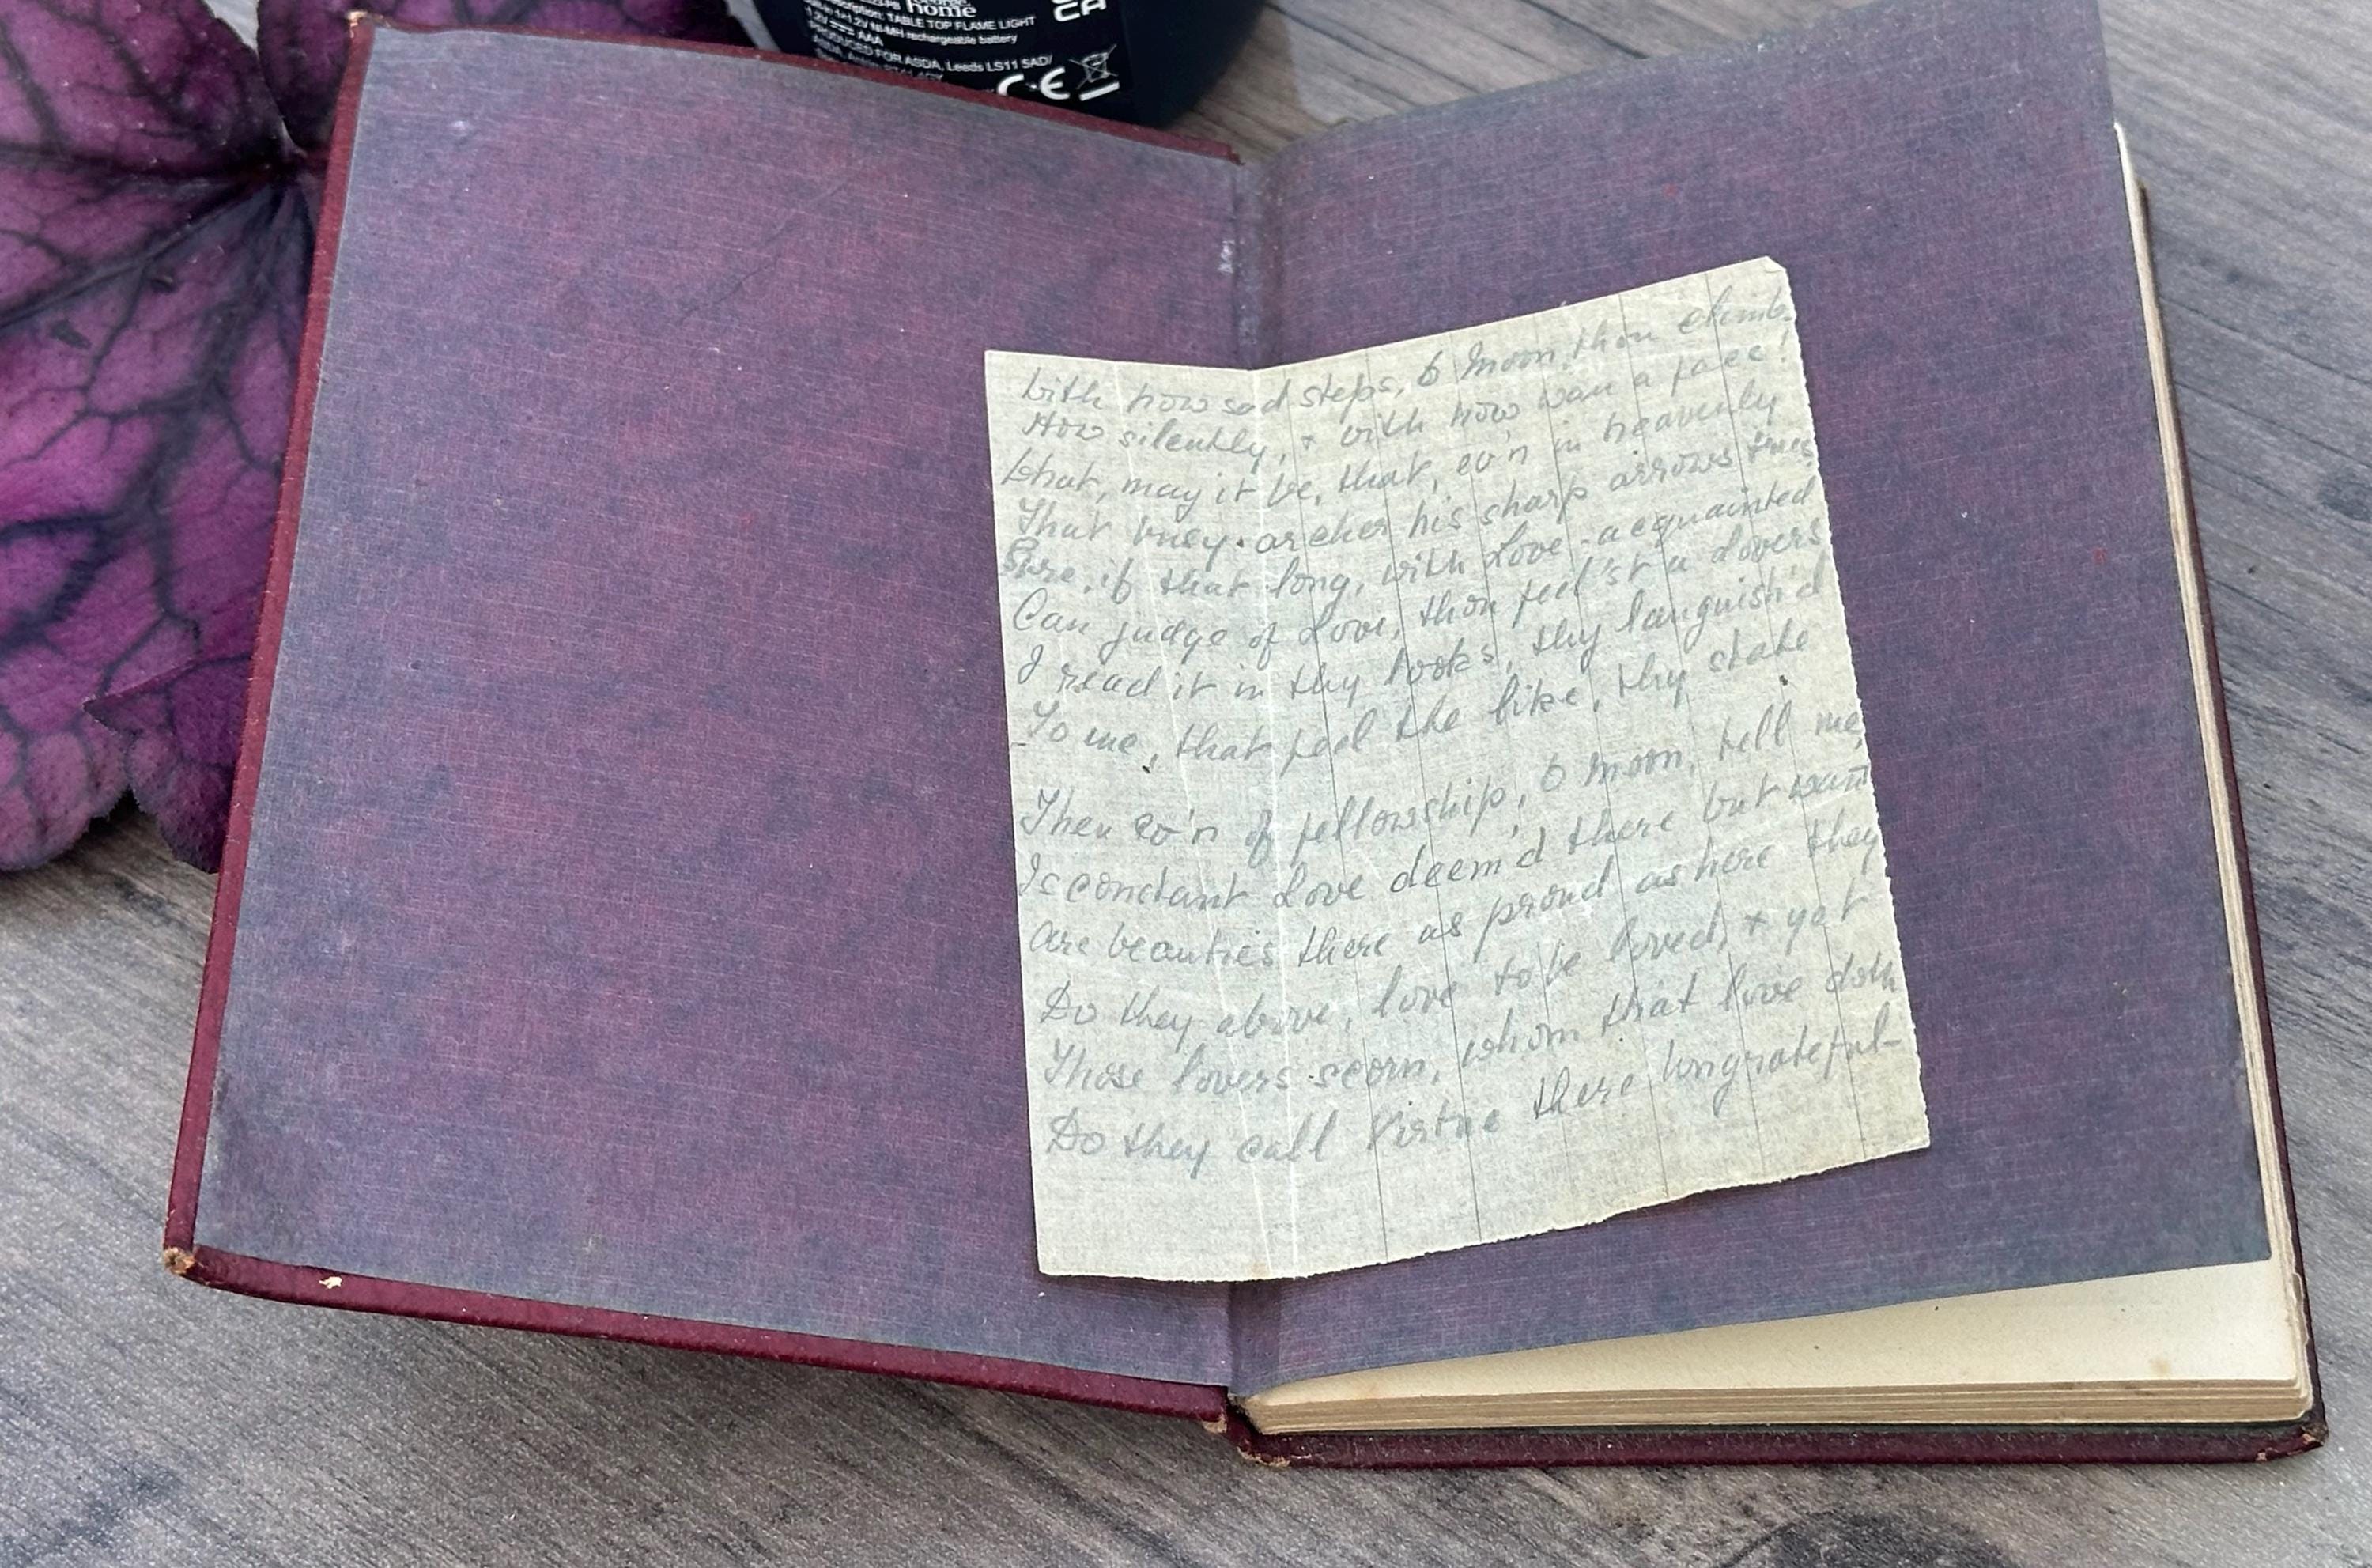 home
TABLE TOP FLAME LIGHT
1.2V Ni-MH rechargeable battery
AAA
PRODUCED FOR ASDA, Leeds LS11 5AD/
CA
CE
With how sad steps, o Moon, thou climb
How silently, + with how wan a face!
What, may it be, that, ev'n in heavenly
That busy archer his sharp arrows tries
Sure, if that long, with Love acquainted
Can judge of Love, thou feel'st a Lovers
I read it in thy looks, thy languish'd
To me, that feel the like, thy state
Then ev'n of fellowship, o moon, tell me,
Is constant Love deem'd there but want
Are beauties there as proud as here they
Do they above, love to be loved, + yet
Those lovers scorn, whom that love doth
Do they call Virtue there Ungrateful-